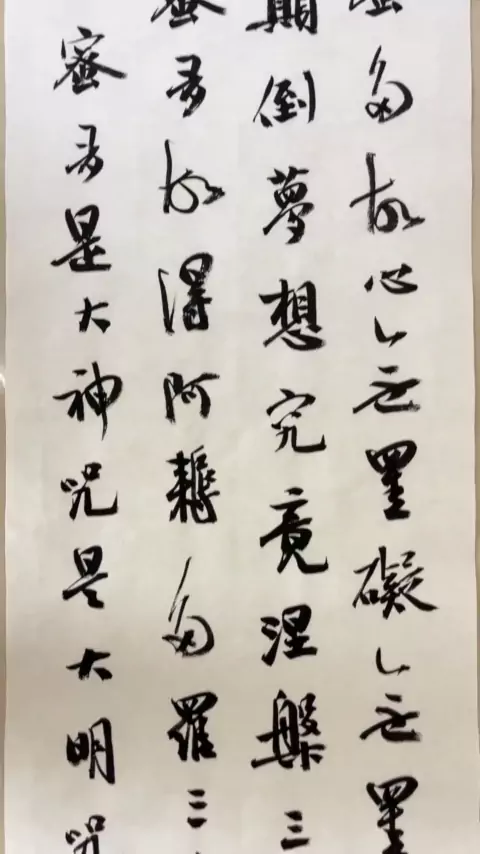 蜜多故心无罣礙无罣
顛倒夢想究竟涅槃三
蜜多故得阿耨多羅三
蜜多是大神咒是大明咒